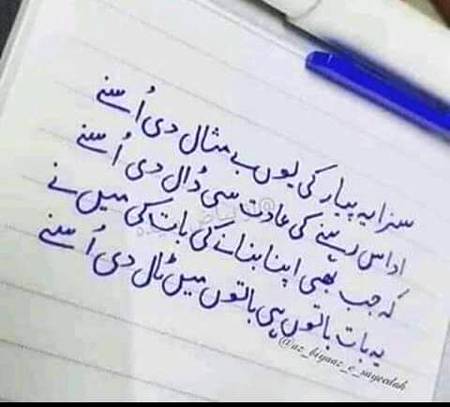 سزا یہ پیار کی یوں بے مثال دی اُسنے
اداس رہنے کی عادت سی ڈال دی اُسنے
کہ جب بھی اپنا بنانے کی بات کی میں نے
یہ بات باتوں ہی باتوں میں ٹال دی اُسنے
@az_biyaaz_e_sayeedah